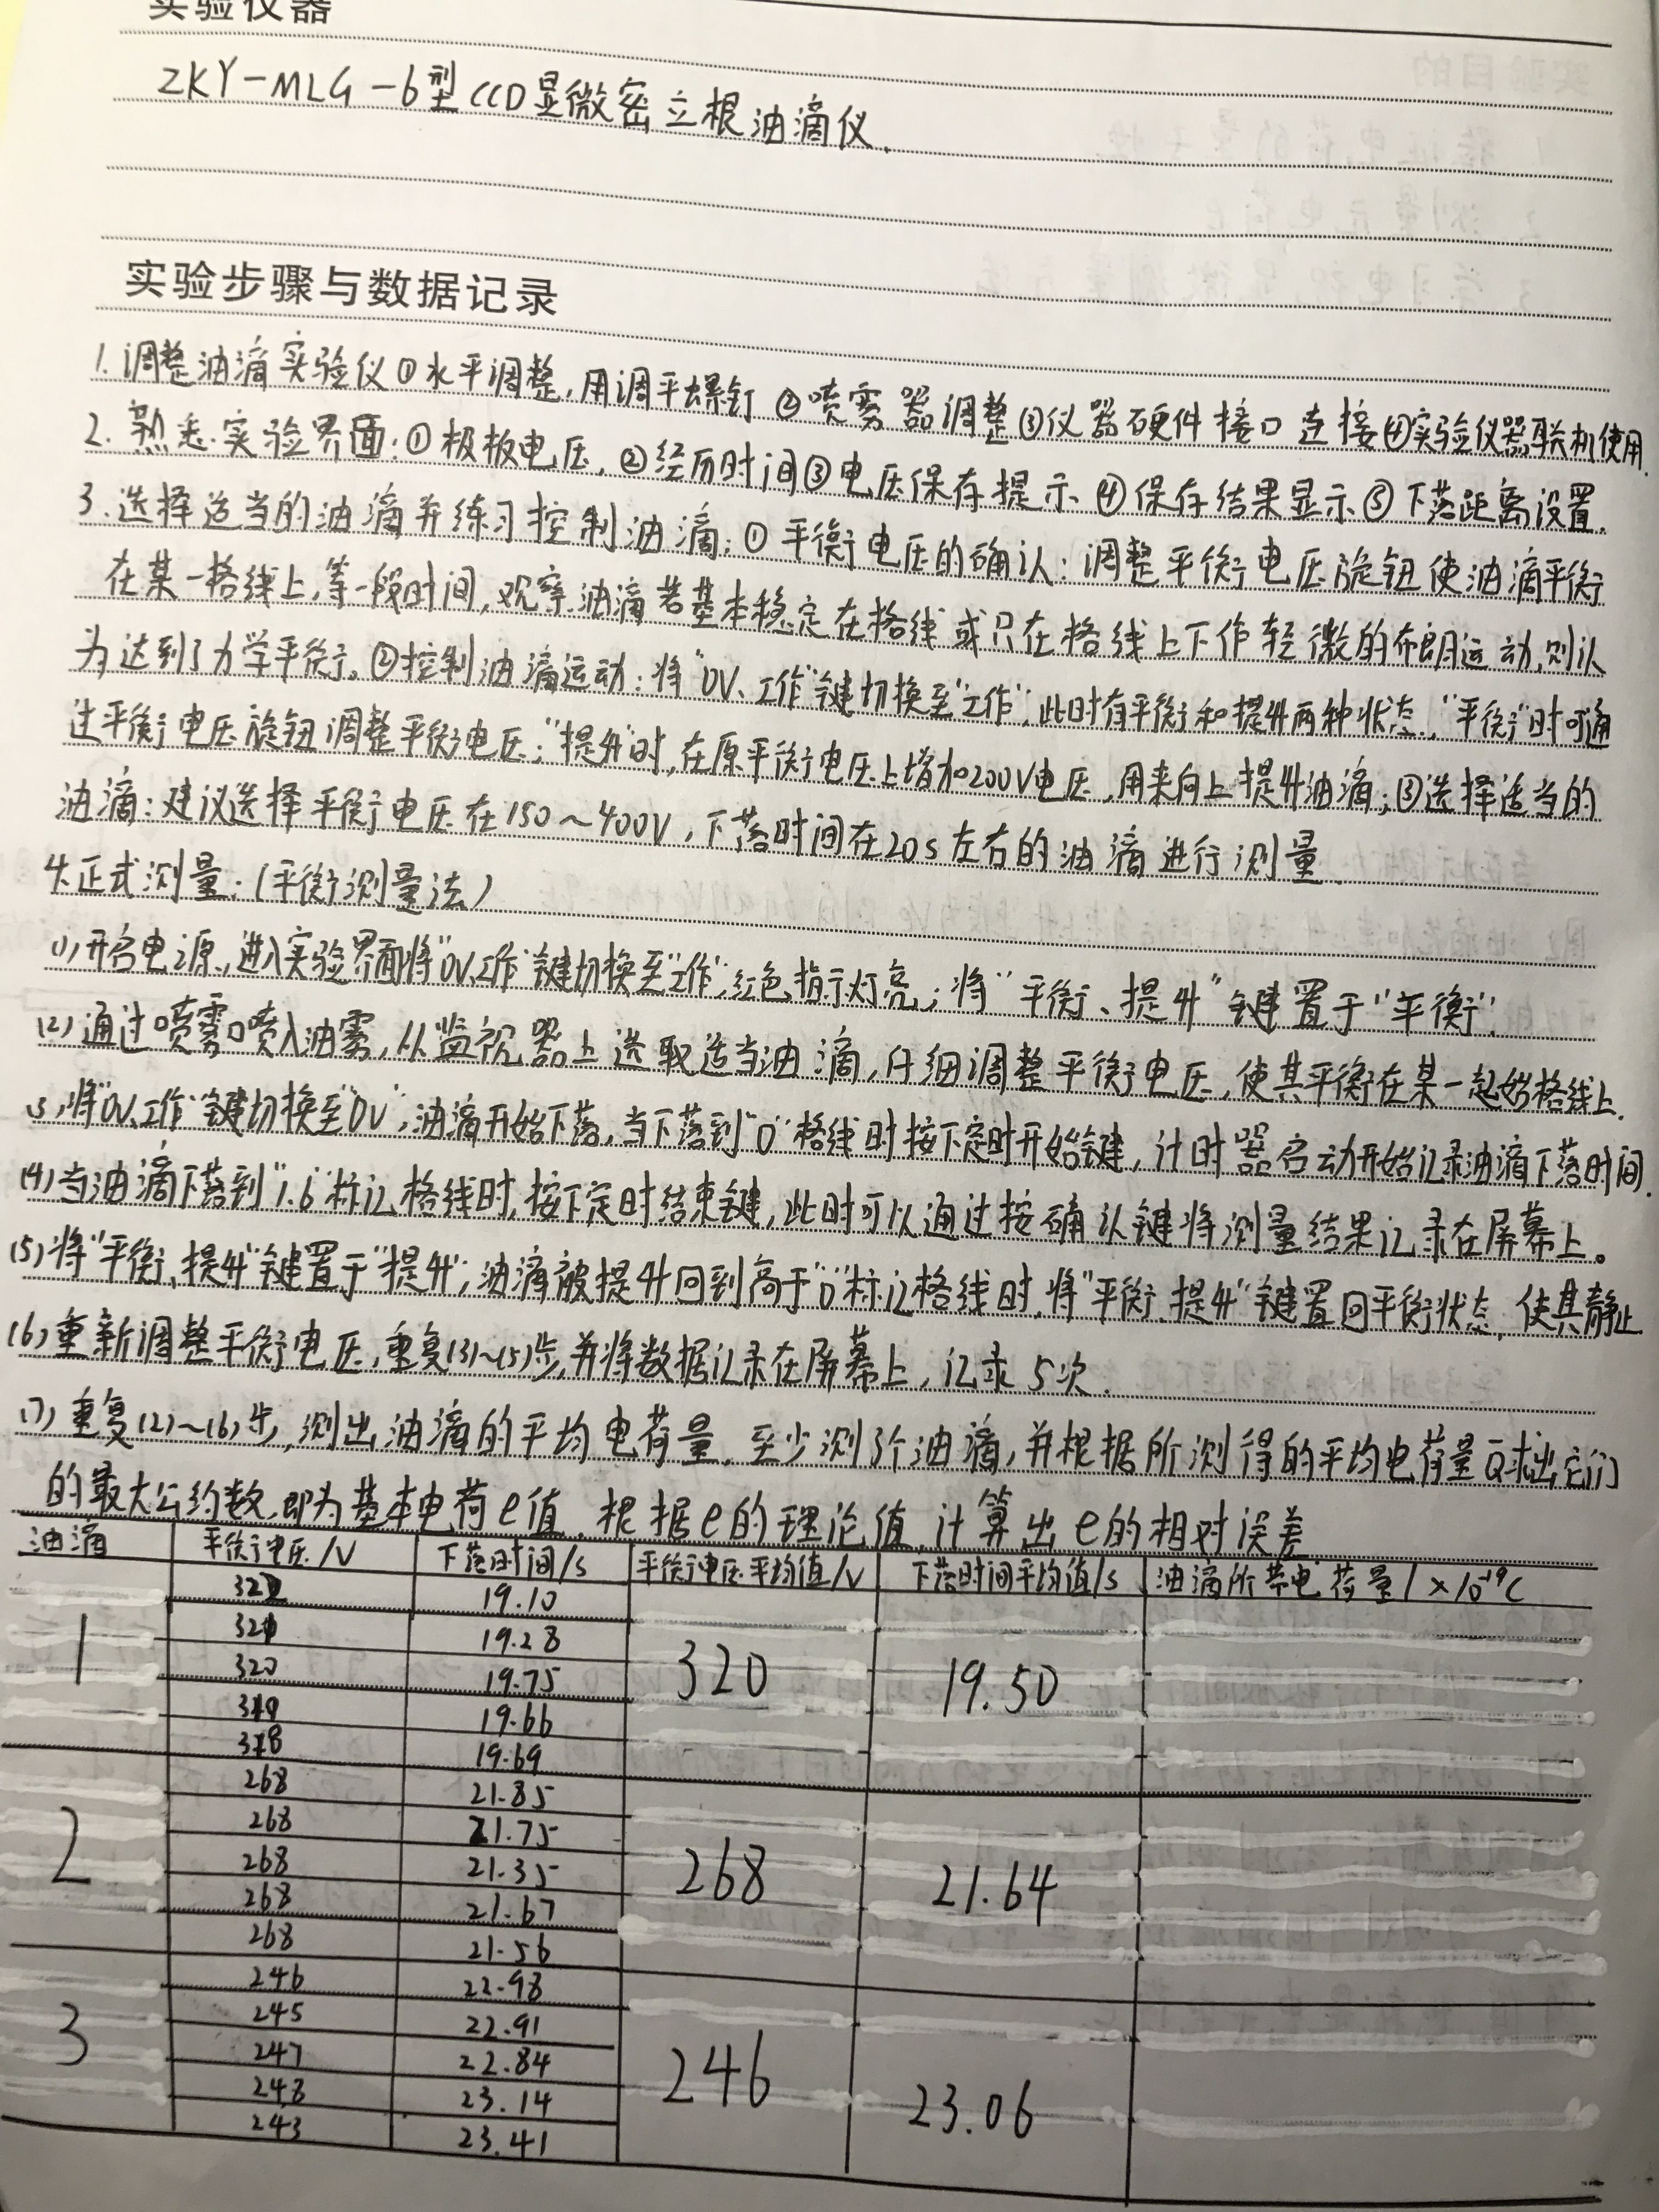 实验仪器
ZKY-MLG-6型CCD显微密立根油滴仪.
实验步骤与数据记录
1.调整油滴实验仪①水平调整,用调平螺钉②喷雾器调整③仪器硬件接口连接④实验仪器联机使用.
2.熟悉实验界面:①极板电压,②经历时间③电压保存提示④保存结果显示⑤下落距离设置.
3.选择适当的油滴并练习控制油滴:①平衡电压的确认:调整平衡电压旋钮使油滴平衡
在某一格线上,等一段时间,观察油滴若基本稳定在格线或只在格线上下作轻微的布朗运动,则认
为达到了力学平衡。②控制油滴运动:将"0V、工作"键切换至"工作",此时有平衡和提升两种状态,"平衡"时可通
过平衡电压旋钮调整平衡电压;"提升"时,在原平衡电压上增加200V电压,用来向上提升油滴;③选择适当的
油滴:建议选择平衡电压在150~400V,下落时间在20s左右的油滴进行测量.
4.正式测量:(平衡测量法)
(1)开启电源,进入实验界面将"0V、工作"键切换至"工作",红色指示灯亮;将"平衡、提升"键置于"平衡".
(2)通过喷雾口喷入油雾,从监视器上选取适当油滴,仔细调整平衡电压,使其平衡在某一起始格线上.
(3)将"0V、工作"键切换至"0V",油滴开始下落,当下落到"0"格线时按下定时开始键,计时器启动开始记录油滴下落时间.
(4)当油滴下落到"1.6"标记格线时,按下定时结束键,此时可以通过按确认键将测量结果记录在屏幕上。
(5)将"平衡、提升"键置于"提升",油滴被提升回到高于"0"标记格线时,将"平衡、提升"键置回平衡状态,使其静止
(6)重新调整平衡电压,重复(3)~(5)步,并将数据记录在屏幕上,记录5次.
(7)重复(2)~(6)步,测出油滴的平均电荷量.至少测3个油滴,并根据所测得的平均电荷量Q̅求出它们
的最大公约数,即为基本电荷e值.根据e的理论值,计算出e的相对误差
油滴 平衡电压/V 下落时间/s 平衡电压平均值/V 下落时间平均值/s 油滴所带电荷量/×10⁻¹⁹C
1 322 19.10 320 19.50
321 19.28
320 19.75
319 19.66
318 19.69
2 268 21.85 268 21.64
268 21.75
268 21.35
268 21.67
268 21.56
3 246 22.98 246 23.06
245 22.91
247 22.84
248 23.14
243 23.41